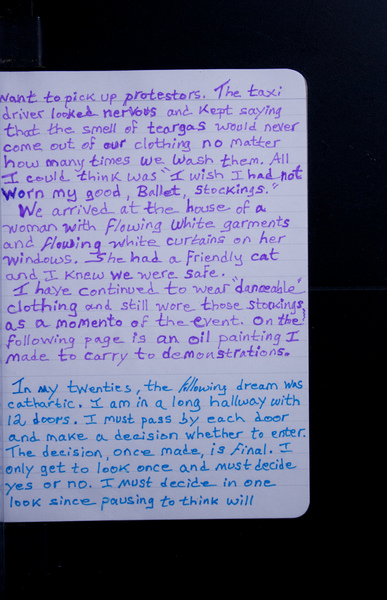 want to pick up protestors. The taxi
driver looked nervous and kept saying
that the smell of teargas would never
come out of our clothing no matter
how many times we wash them. All
I could think was "I wish I had not
worn my good, Ballet, stockings."
We arrived at the house of a
woman with flowing white garments
and flowing white curtains on her
windows. She had a friendly cat
and I knew we were safe.
I have continued to wear "danceable"
clothing and still wore those stockings
as a momento of the event. On the
following page is an oil painting I
made to carry to demonstrations.
In my twenties, the following dream was
cathartic. I am in a long hallway with
12 doors. I must pass by each door
and make a decision whether to enter.
The decision, once made, is final. I
only get to look once and must decide
yes or no. I must decide in one
look since pausing to think will